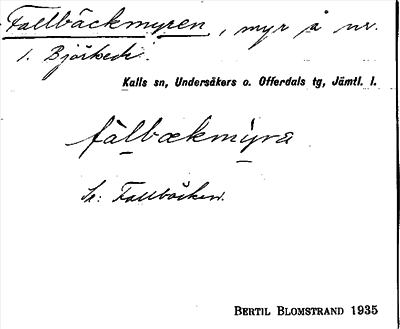 Fallbäckmyren, myr å nr.
1. Björkede.
Kalls sn, Undersåkers o. Offerdals tg, Jämtl. l.
fàlbækmỳra
Se: Fallbäcken.
BERTIL BLOMSTRAND 1935